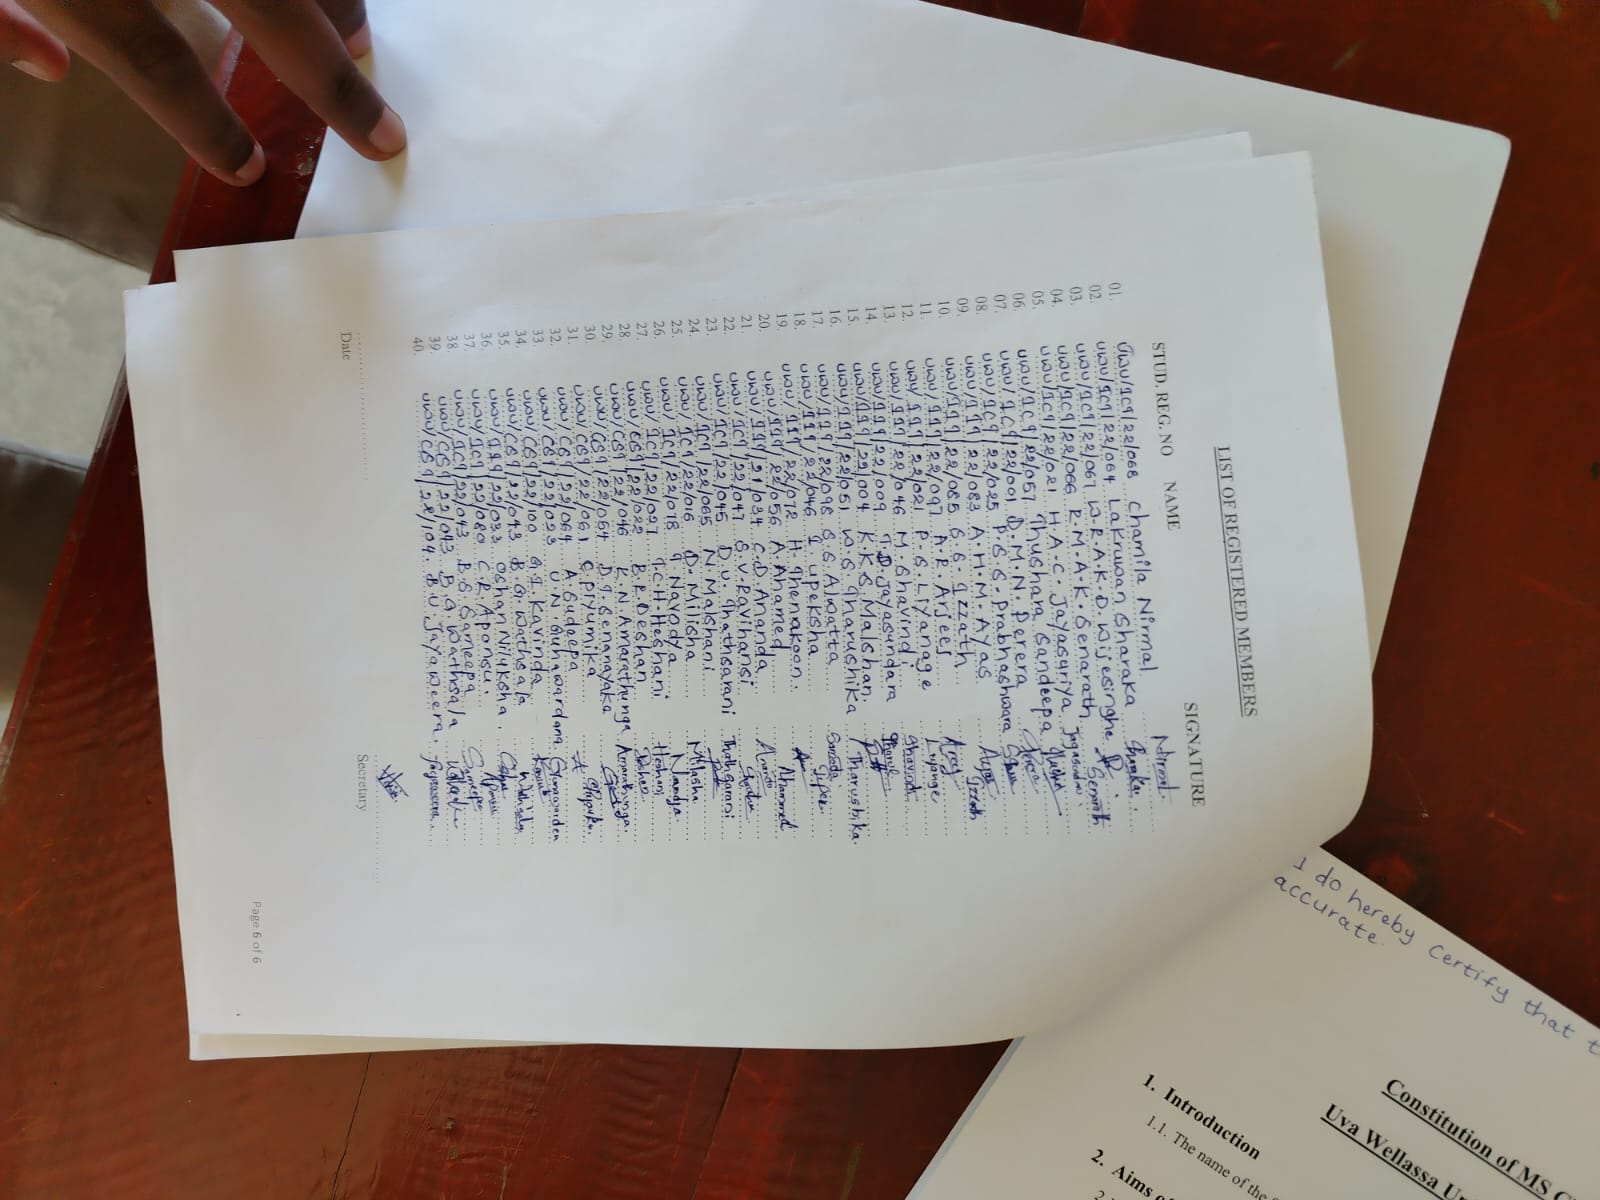 LIST OF REGISTERED MEMBERS
STUD. REG. NO NAME SIGNATURE
01. UWU/ICT/22/068 Chamila Nirmal Nirmal
02. UWU/ICT/22/064 Lakruwan Sharaka
03. UWU/ICT/22/067 W.R.A.K.D. Wijesinghe
04. UWU/ICT/22/066 R.M.A.K. Senarath
05. UWU/ICT/22/021 H.A.C. Jayasuriya
06. UWU/ICT/22/057 Thushara Sandeepa
07. UWU/ICT/22/001 D.M.N. Perera
08. UWU/ICT/22/025 P.S.S. Prabhashwara
09. UWU/IIT/22/083 A.H.M. Ayas Ayas
10. UWU/IIT/22/085 S.S. Izzath Izzath
11. UWU/IIT/22/097 A.R. Arjees
12. UWU/IIT/22/021 P.S. Liyanage Liyanage
13. UWU/IIT/22/046 M. Shavindi Shavindi
14. UWU/IIT/22/009 T.D. Jayasundara
15. UWU/IIT/22/004 K.K.S. Malshan
16. UWU/IIT/22/051 W.S. Tharushika Tharushika
17. UWU/IIT/22/098 S.S. Alwatta
18. UWU/IIT/22/046 I. upeksha
19. UWU/IIT/22/072 H. Thenakoon
20. UWU/IIT/22/056 A. Ahamed Ahammed
21. UWU/IIT/21/034 C.D. Ananda Ananda
22. UWU/ICT/22/047 S.V. Ravihansi
23. UWU/ICT/22/045 D.U. Thathsarani Thathsarani
24. UWU/ICT/22/065 N. Malshani
25. UWU/ICT/22/016 D. Milisha
26. UWU/ICT/22/018 T. Navodya
27. UWU/ICT/22/027 I.C.H. Heshani Heshani
28. UWU/CST/22/022 R.R. Deshan Deshan
29. UWU/CST/22/046 K.N. Amarathunga Amarathunga
30. UWU/CST/22/054 D.I. Senanayaka
31. UWU/CST/22/061 C. Piyumika
32. UWU/CST/22/064 A. Sudeepa
33. UWU/CST/22/023 U.N. Gunawardana
34. UWU/CST/22/100 G.I. Kavinda
35. UWU/CST/22/043 B.G. Wathsala
36. UWU/IIT/22/033 Oshan Niluksha
37. UWU/ICT/22/080 C.R. Aponsu
38. UWU/ICT/22/043 B.S. Sameepa
39. UWU/CST/22/043 B.G. Wathsala
40. UWU/CST/22/104 B.U. Jayaweera Jayaweera
Date
Secretary
Page 6 of 6
I do hereby certify that
accurate.
Constitution of MS
Uva Wellassa
1. Introduction
1.1. The name of the
2. Aims